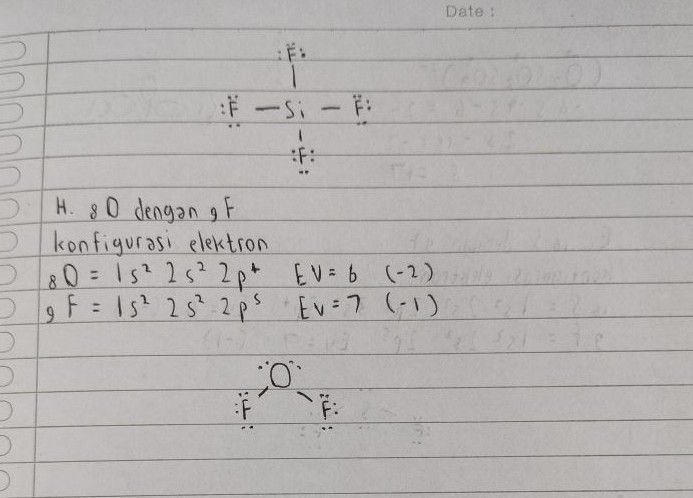 Date :
:F̈:
|
:F̈ — Si — F̈:
|
:F:
H. ₈O dengan ₉F
konfigurasi elektron
₈O = 1s² 2s² 2p⁴ EV = 6 (-2)
₉F = 1s² 2s² 2p⁵ EV = 7 (-1)
O
:F̈ F̈: